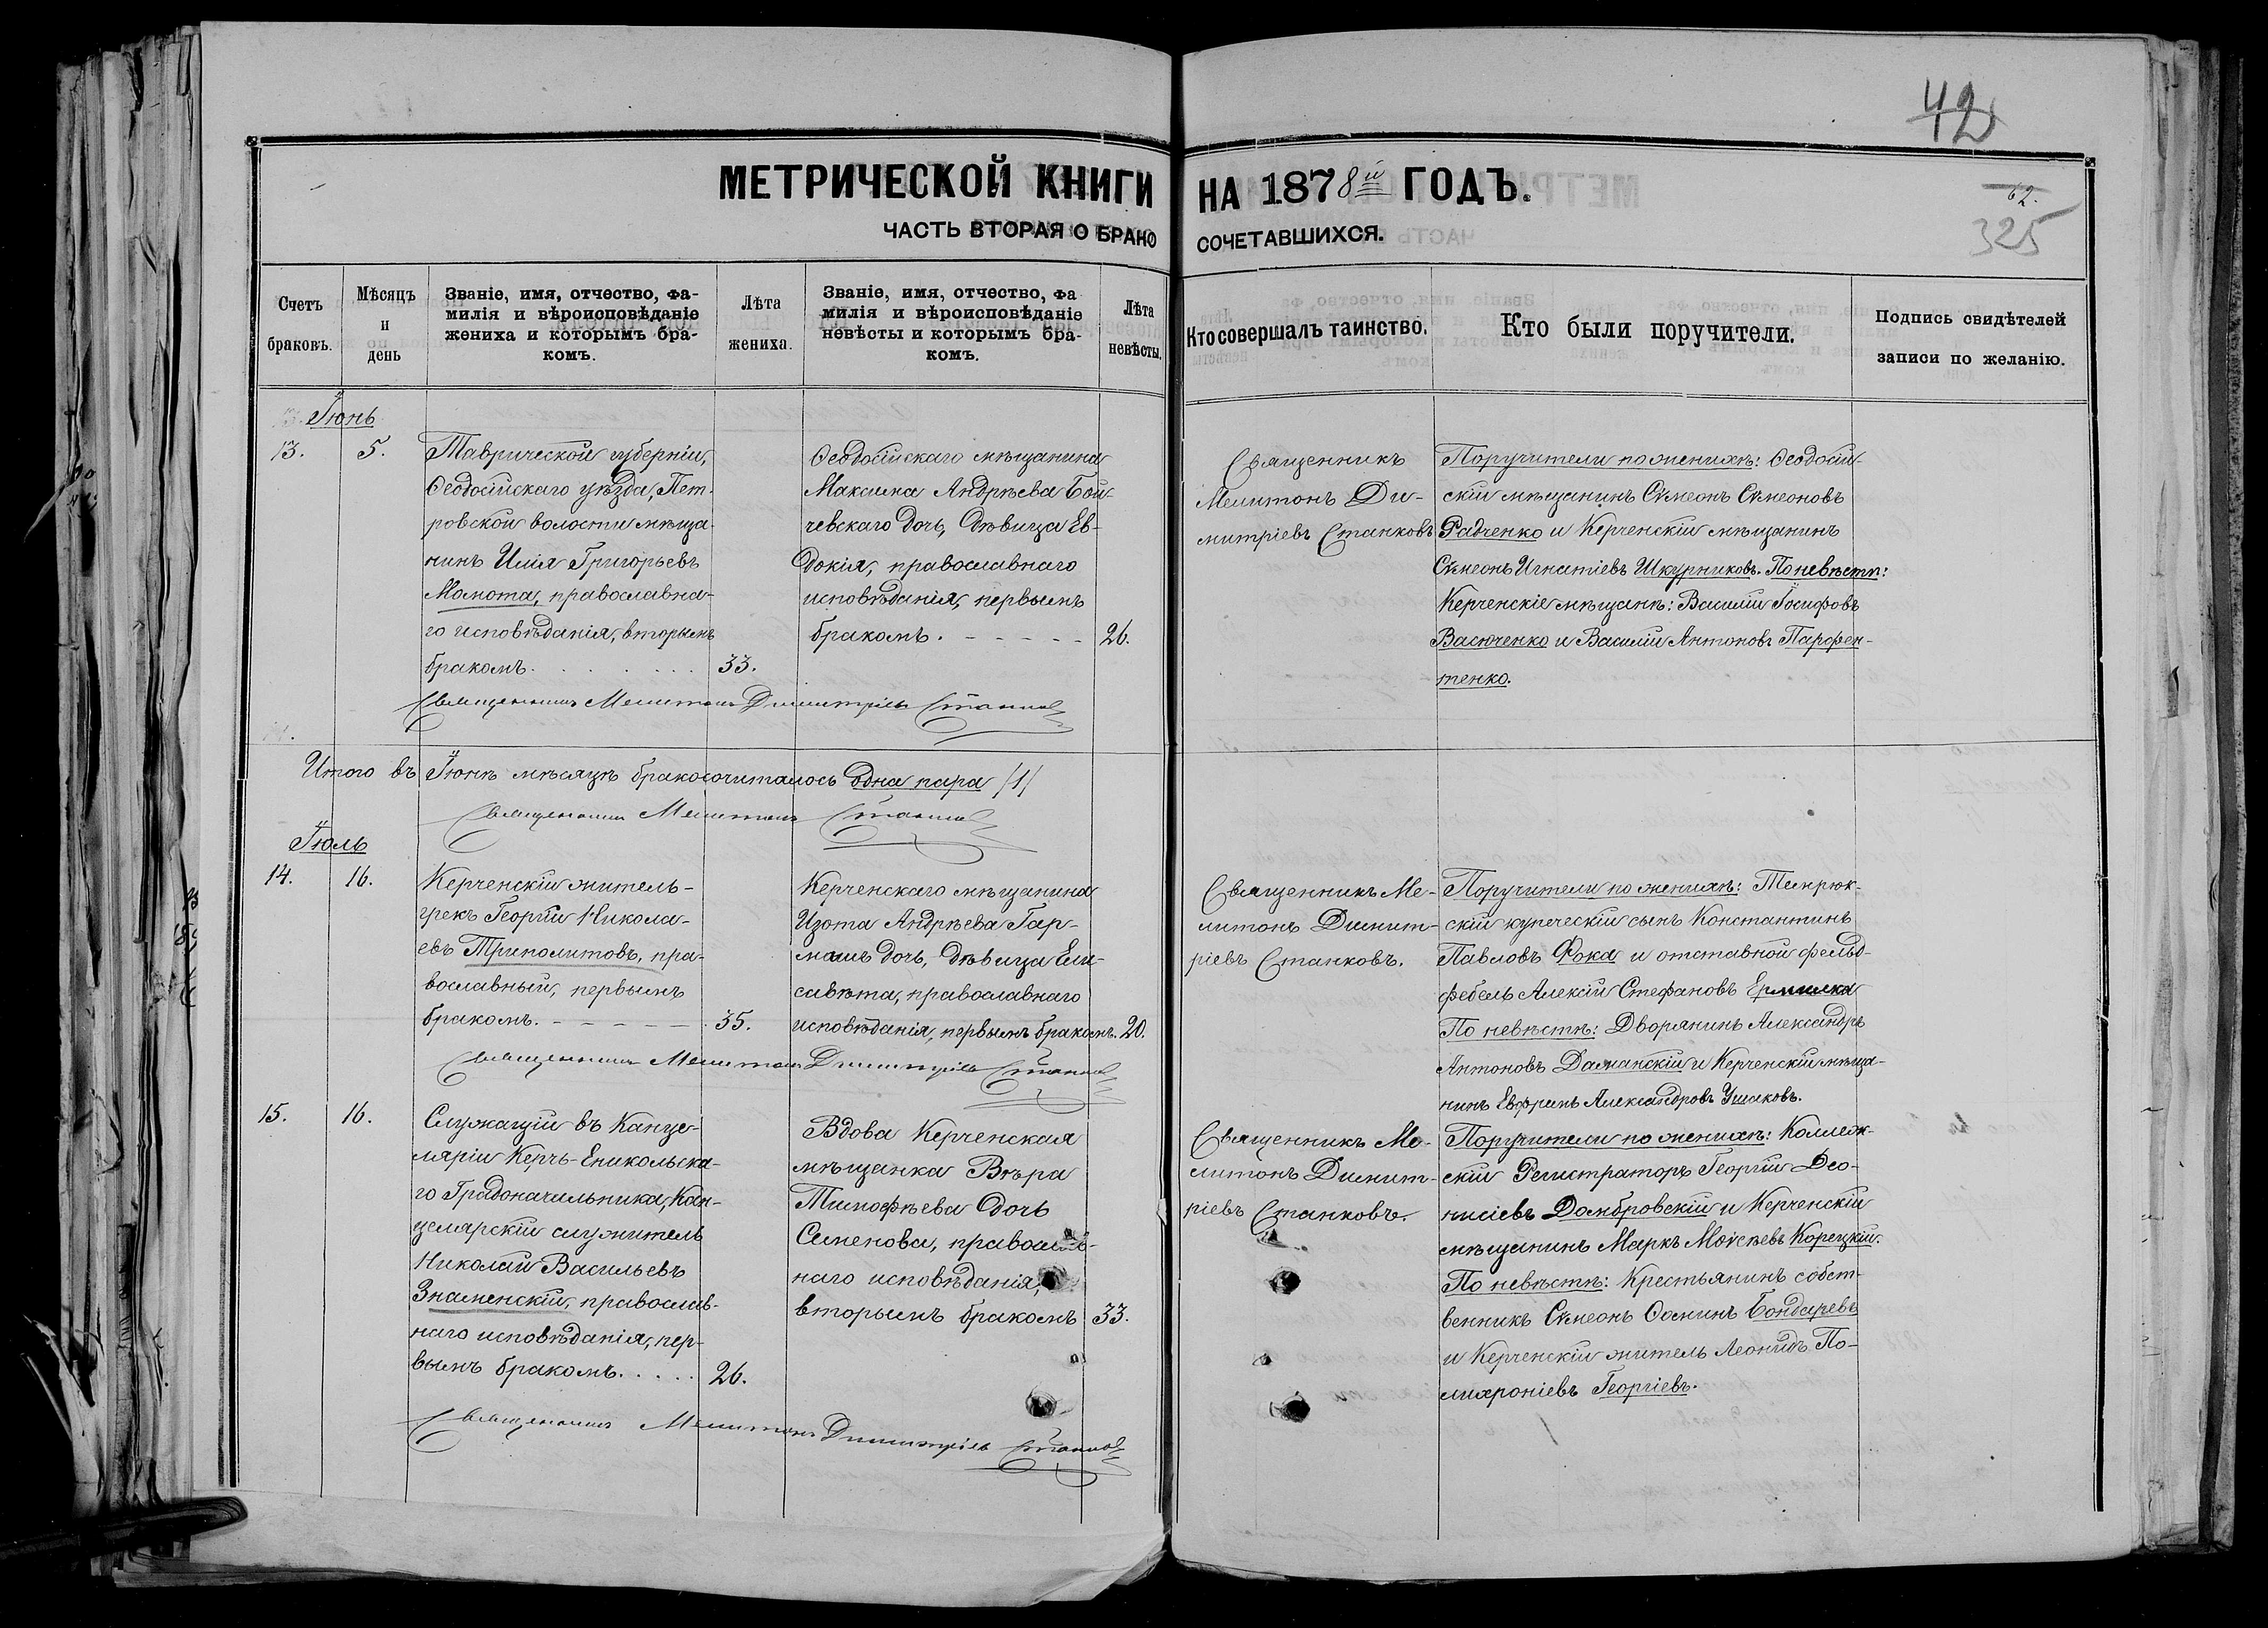 42
МЕТРИЧЕСКОЙ КНИГИ НА 1878й ГОДЪ.
62.
325
ЧАСТЬ ВТОРАЯ О БРАКО СОЧЕТАВШИХСЯ.
Счетъ
браковъ.
Мѣсяцъ
и
день
Званіе, имя, отчество, фа-
милія и вѣроисповѣданіе
жениха и которымъ бра-
комъ.
Лѣта
жениха.
Званіе, имя, отчество, фа
милія и вѣроисповѣданіе
невѣсты и которымъ бра-
комъ.
Лѣта
невѣсты.
Кто совершалъ таинство.
Кто были поручители.
Подпись свидѣтелей
записи по желанію.
Іюнь
13.
5.
Таврической губерніи,
Ѳеодосійскаго уѣзда, Пет-
ровской волости мѣща-
нинъ Илія Григорьевъ
Мамота, православна-
го исповѣданія, вторымъ
бракомъ. . . . . . . . 33.
Ѳеодосійскаго мѣщанина
Максима Андрѣева Бой-
чевскаго дочь, дѣвица Ев-
докія, православнаго
исповѣданія, первымъ
бракомъ. - - - - - 26.
Священникъ
Мелитонъ Ди-
митріевъ Станковъ
Поручители по женихѣ: Ѳеодосій-
скій мѣщанинъ Сѵмеонъ Сѵмеоновъ
Радченко и Керченскій мѣщанинъ
Сѵмеонъ Игнатіевъ Шкурниковъ. По невѣстѣ:
Керченскіе мѣщане: Василій Іосифовъ
Васюченко и Василій Антоновъ Парфен-
тенко.
Священникъ Мелитонъ Димитріевъ Станковъ
Итого въ Іюнѣ мѣсяцѣ бракосочиталось одна пара /1/
Священникъ Мелитонъ Станковъ
Іюль
14.
16.
Керченскій житель-
грекъ Георгій Никола-
евъ Триполитовъ, пра-
вославный, первымъ
бракомъ. - - - - - - 35.
Керченскаго мѣщанина
Изота Андрѣева Гар-
машъ дочь, дѣвица Ели-
савѣта, православнаго
исповѣданія, первымъ бракомъ. 20.
Священникъ Ме-
литонъ Димит-
ріевъ Станковъ.
Поручители по женихѣ: Темрюк-
скій купеческій сынъ Константинъ
Павловъ Фока и отставной фельд-
фебель Алексій Стефановъ Ермилка
По невѣстѣ: Дворянинъ Александръ
Антоновъ Даманскій и Керченскій мѣща-
нинъ Евфримъ Александровъ Ушаковъ.
Священникъ Мелитонъ Димитріевъ Станковъ
15.
16.
Служащій въ Канце-
ляріи Керчь-Еникольска-
го Градоначальника, Кан-
целярскій служитель
Николай Васильевъ
Знаменскій, православ-
наго исповѣданія, пер-
вымъ бракомъ. . . . . 26.
Вдова Керченская
мѣщанка Вѣра
Тимофѣева дочь
Семенова, православ-
наго исповѣданія,
вторымъ бракомъ 33.
Священникъ Ме-
литонъ Димит-
ріевъ Станковъ.
Поручители по женихѣ: Коллеж-
скій Регистраторъ Георгій Део-
нисіевъ Домбровскій и Керченскій
мѣщанинъ Маркъ Моѵсѣевъ Корецкій.
По невѣстѣ: Крестьянинъ собст-
венникъ Сѵмеонъ Ѳоминъ Бондаревъ
и Керченскій житель Леонидъ По-
лихроніевъ Георгіевъ.
Священникъ Мелитонъ Димитріевъ Станковъ